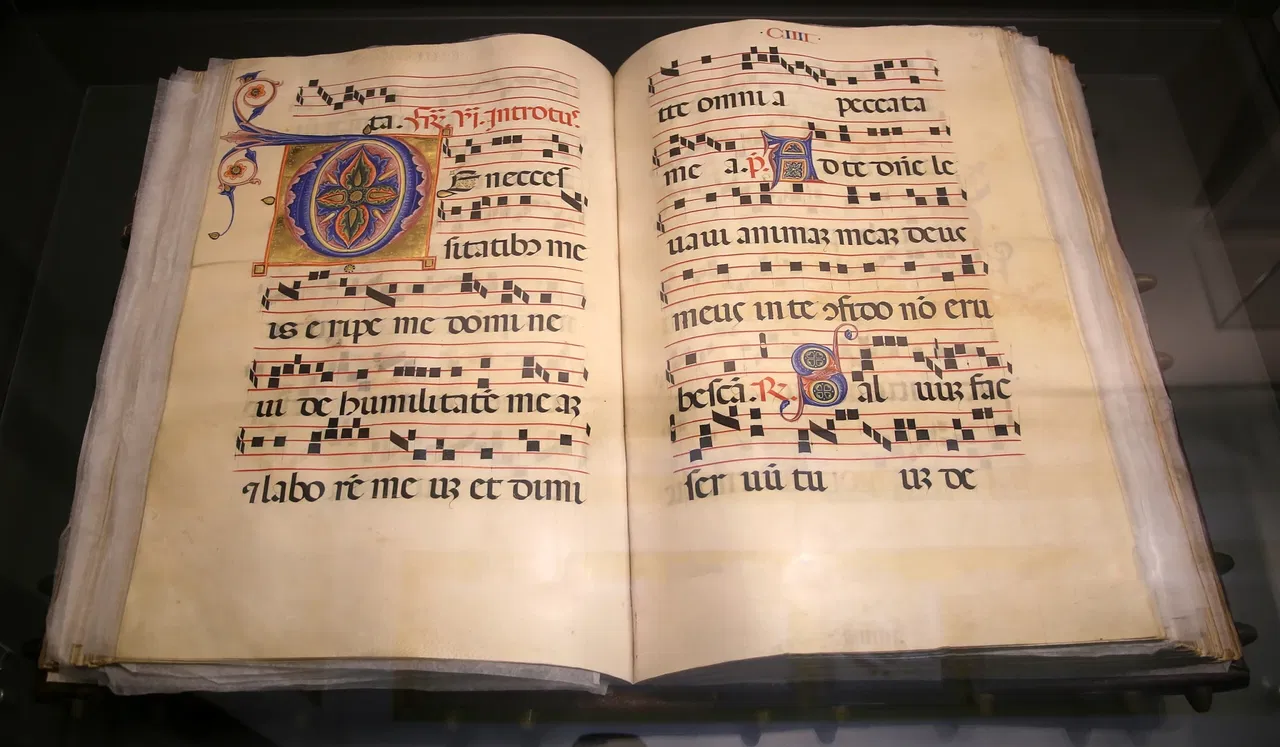 ta. Fr̄. VJ. Introtus
DE necces
sitatibꝰ me
is e ripe me domi ne
ui de humilitatē me aꝫ
⁊labo rē me uꝫ et dimi
·CIIII·
tte omni a peccata
me a. p̄. Ad te dn̄e le
uaui animaꝫ meaꝫ deus
meus in te ꝯfido nō eru
bescā. R̃. Sal uuꝫ fac
ser uū tu uꝫ de